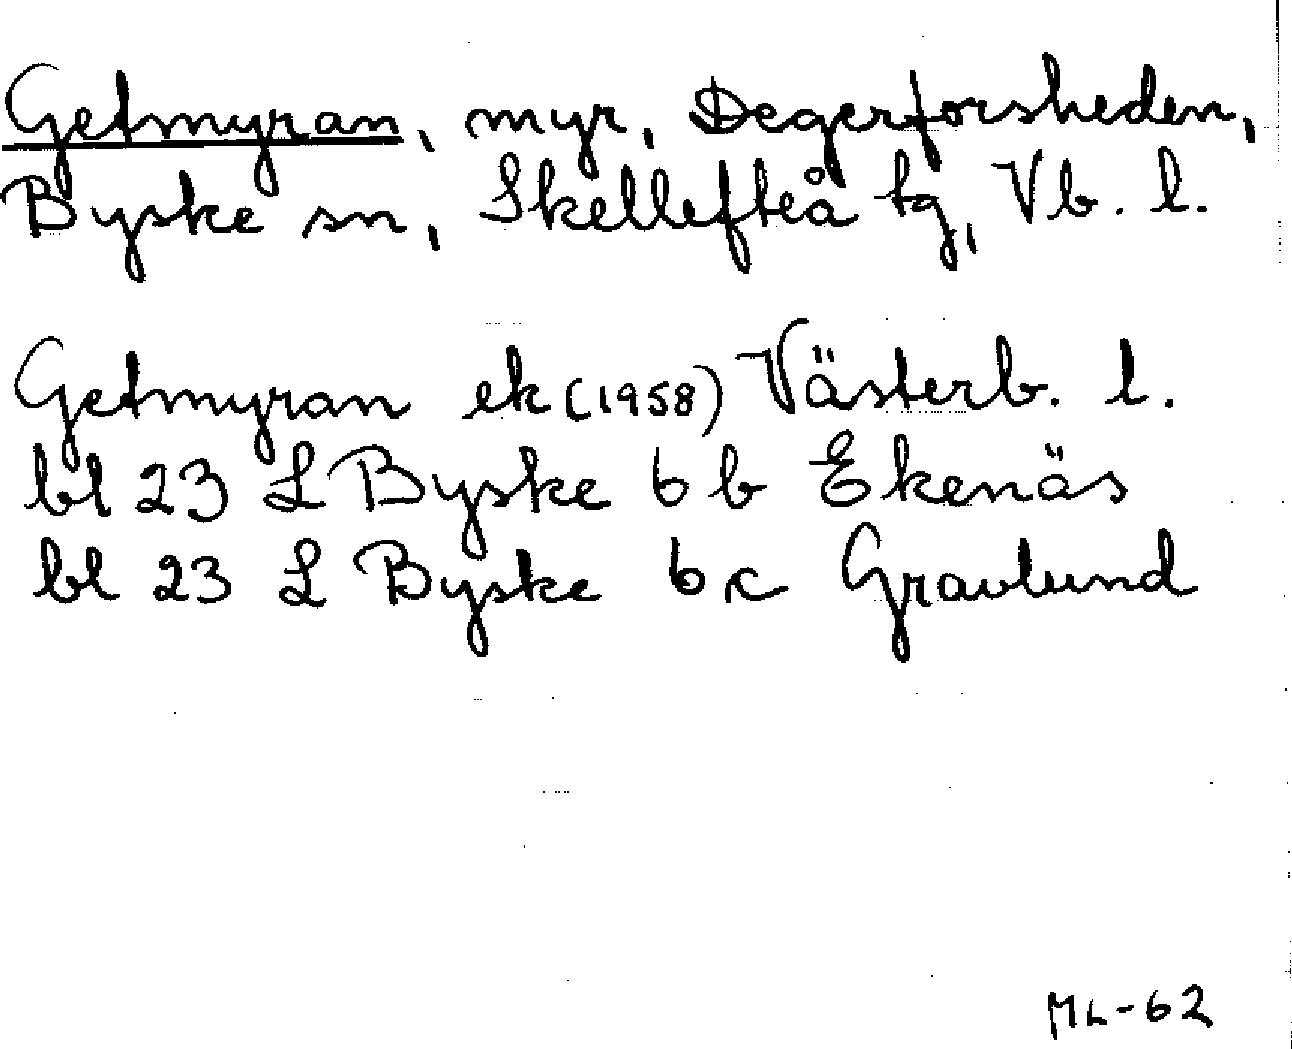 Getmyran, myr, Degerforsheden,
Byske sn, Skellefteå tg, Vb. l.
Getmyran ek (1958) Västerb. l.
bl 23 L Byske 6 b Ekenäs
bl 23 L Byske 6 c Gravlund
ML-62